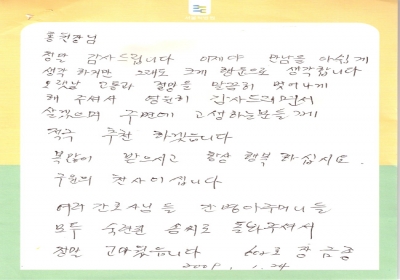 홍원장님
정말 감사드립니다 이제야 만남을 아쉽게
생각 하지만 그래도 크게 행운으로 생각합니다
오랫날 고통과 절망을 말끔히 벗어나게
해 주셔서 영원히 감사드리면서
살겠으며 주변에 고생하는분들께
적극 추천 하겠습니다
복많이 받으시고 항상 행복 하십시요.
구원의 천사이십니다
여러 간호사님들 안내아주머니들
모두 숙련된 솜씨로 도와주셔서
정말 고마웠습니다
장금종
2009. 1.24